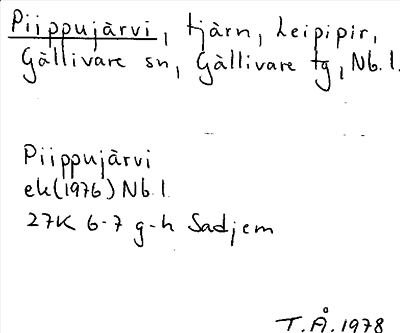 Piippujärvi, tjärn, Leipipir,
Gällivare sn, Gällivare tg, Nb.l.
Piippujärvi
ek(1976) Nb l.
27K 6-7 g-h Sadjem
T.Å. 1978